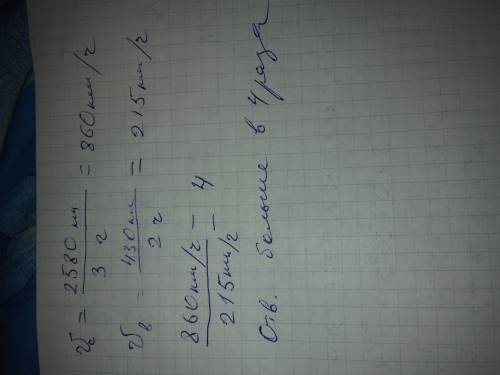 Vс = 2580 км / 3 г = 860 км/г
Vв = 430 км / 2 г = 215 км/г
860 км/г / 215 км/г = 4
Отв. больше в 4 раза